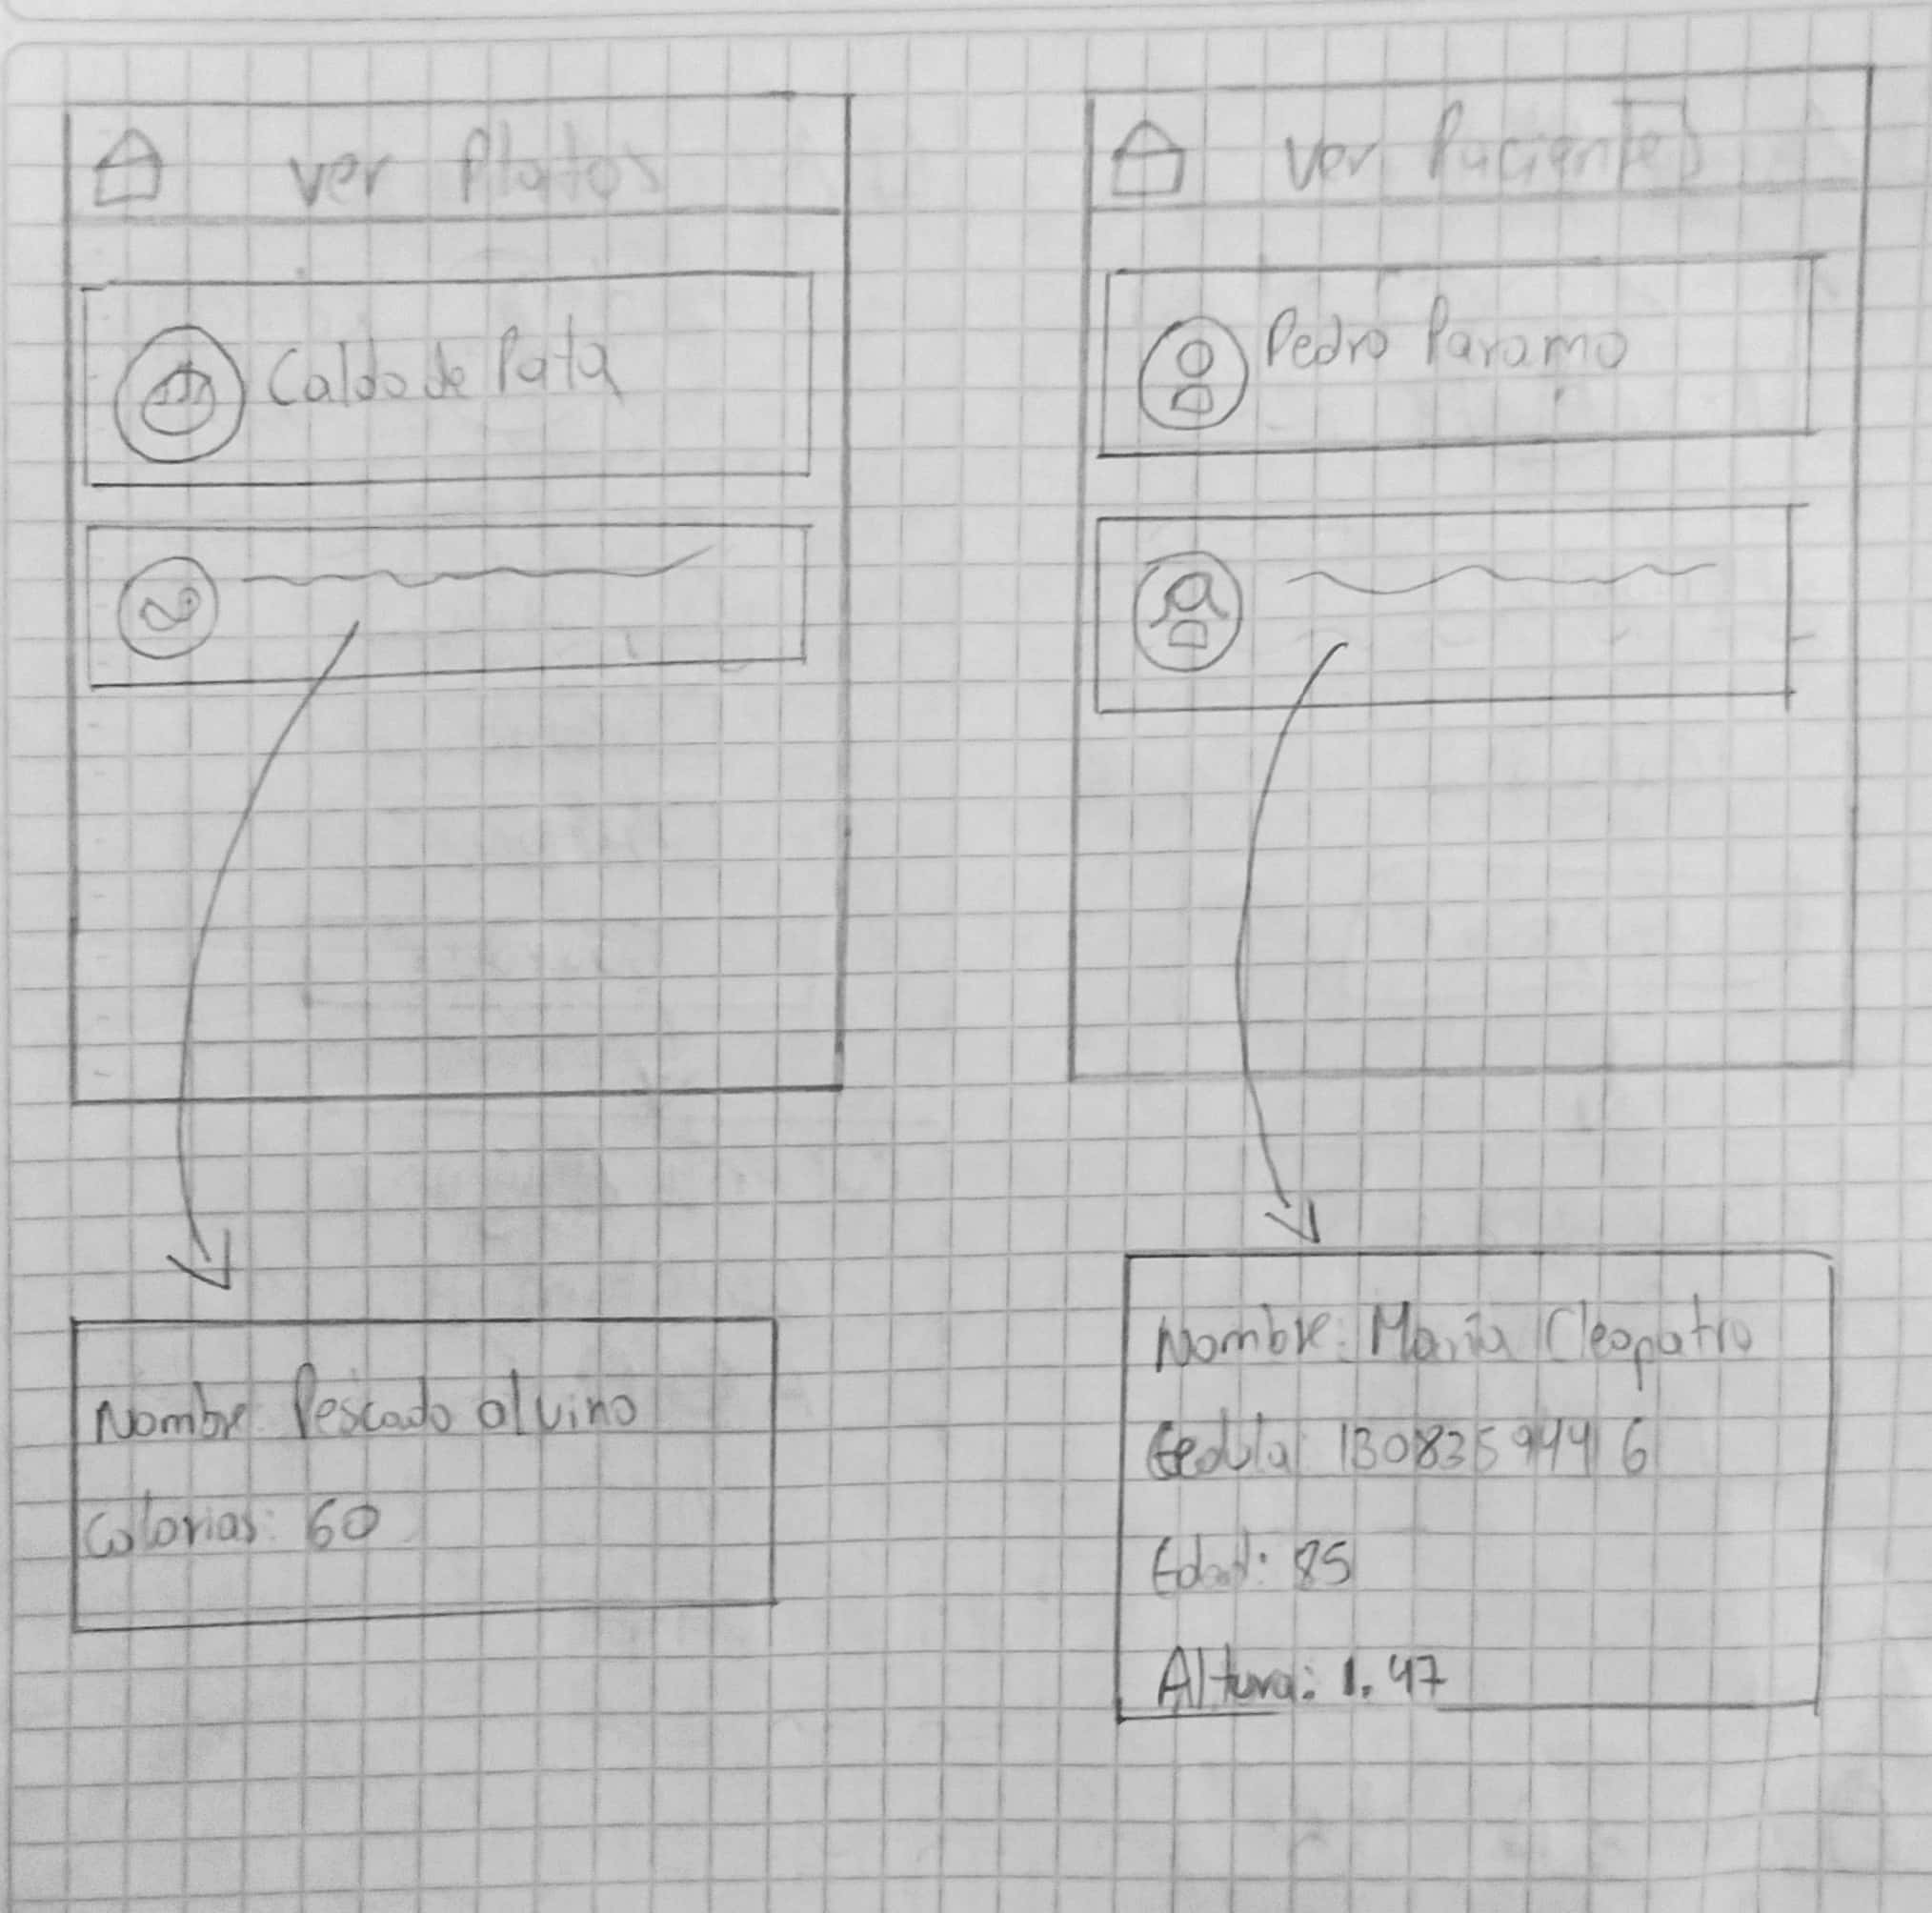 ver Platos
Caldo de Pata
Nombre: Pescado al vino
Calorias: 60
ver Pacientes
Pedro Paramo
Nombre: María Cleopatra
Cedula: 1308359446
Edad: 85
Altura: 1.47